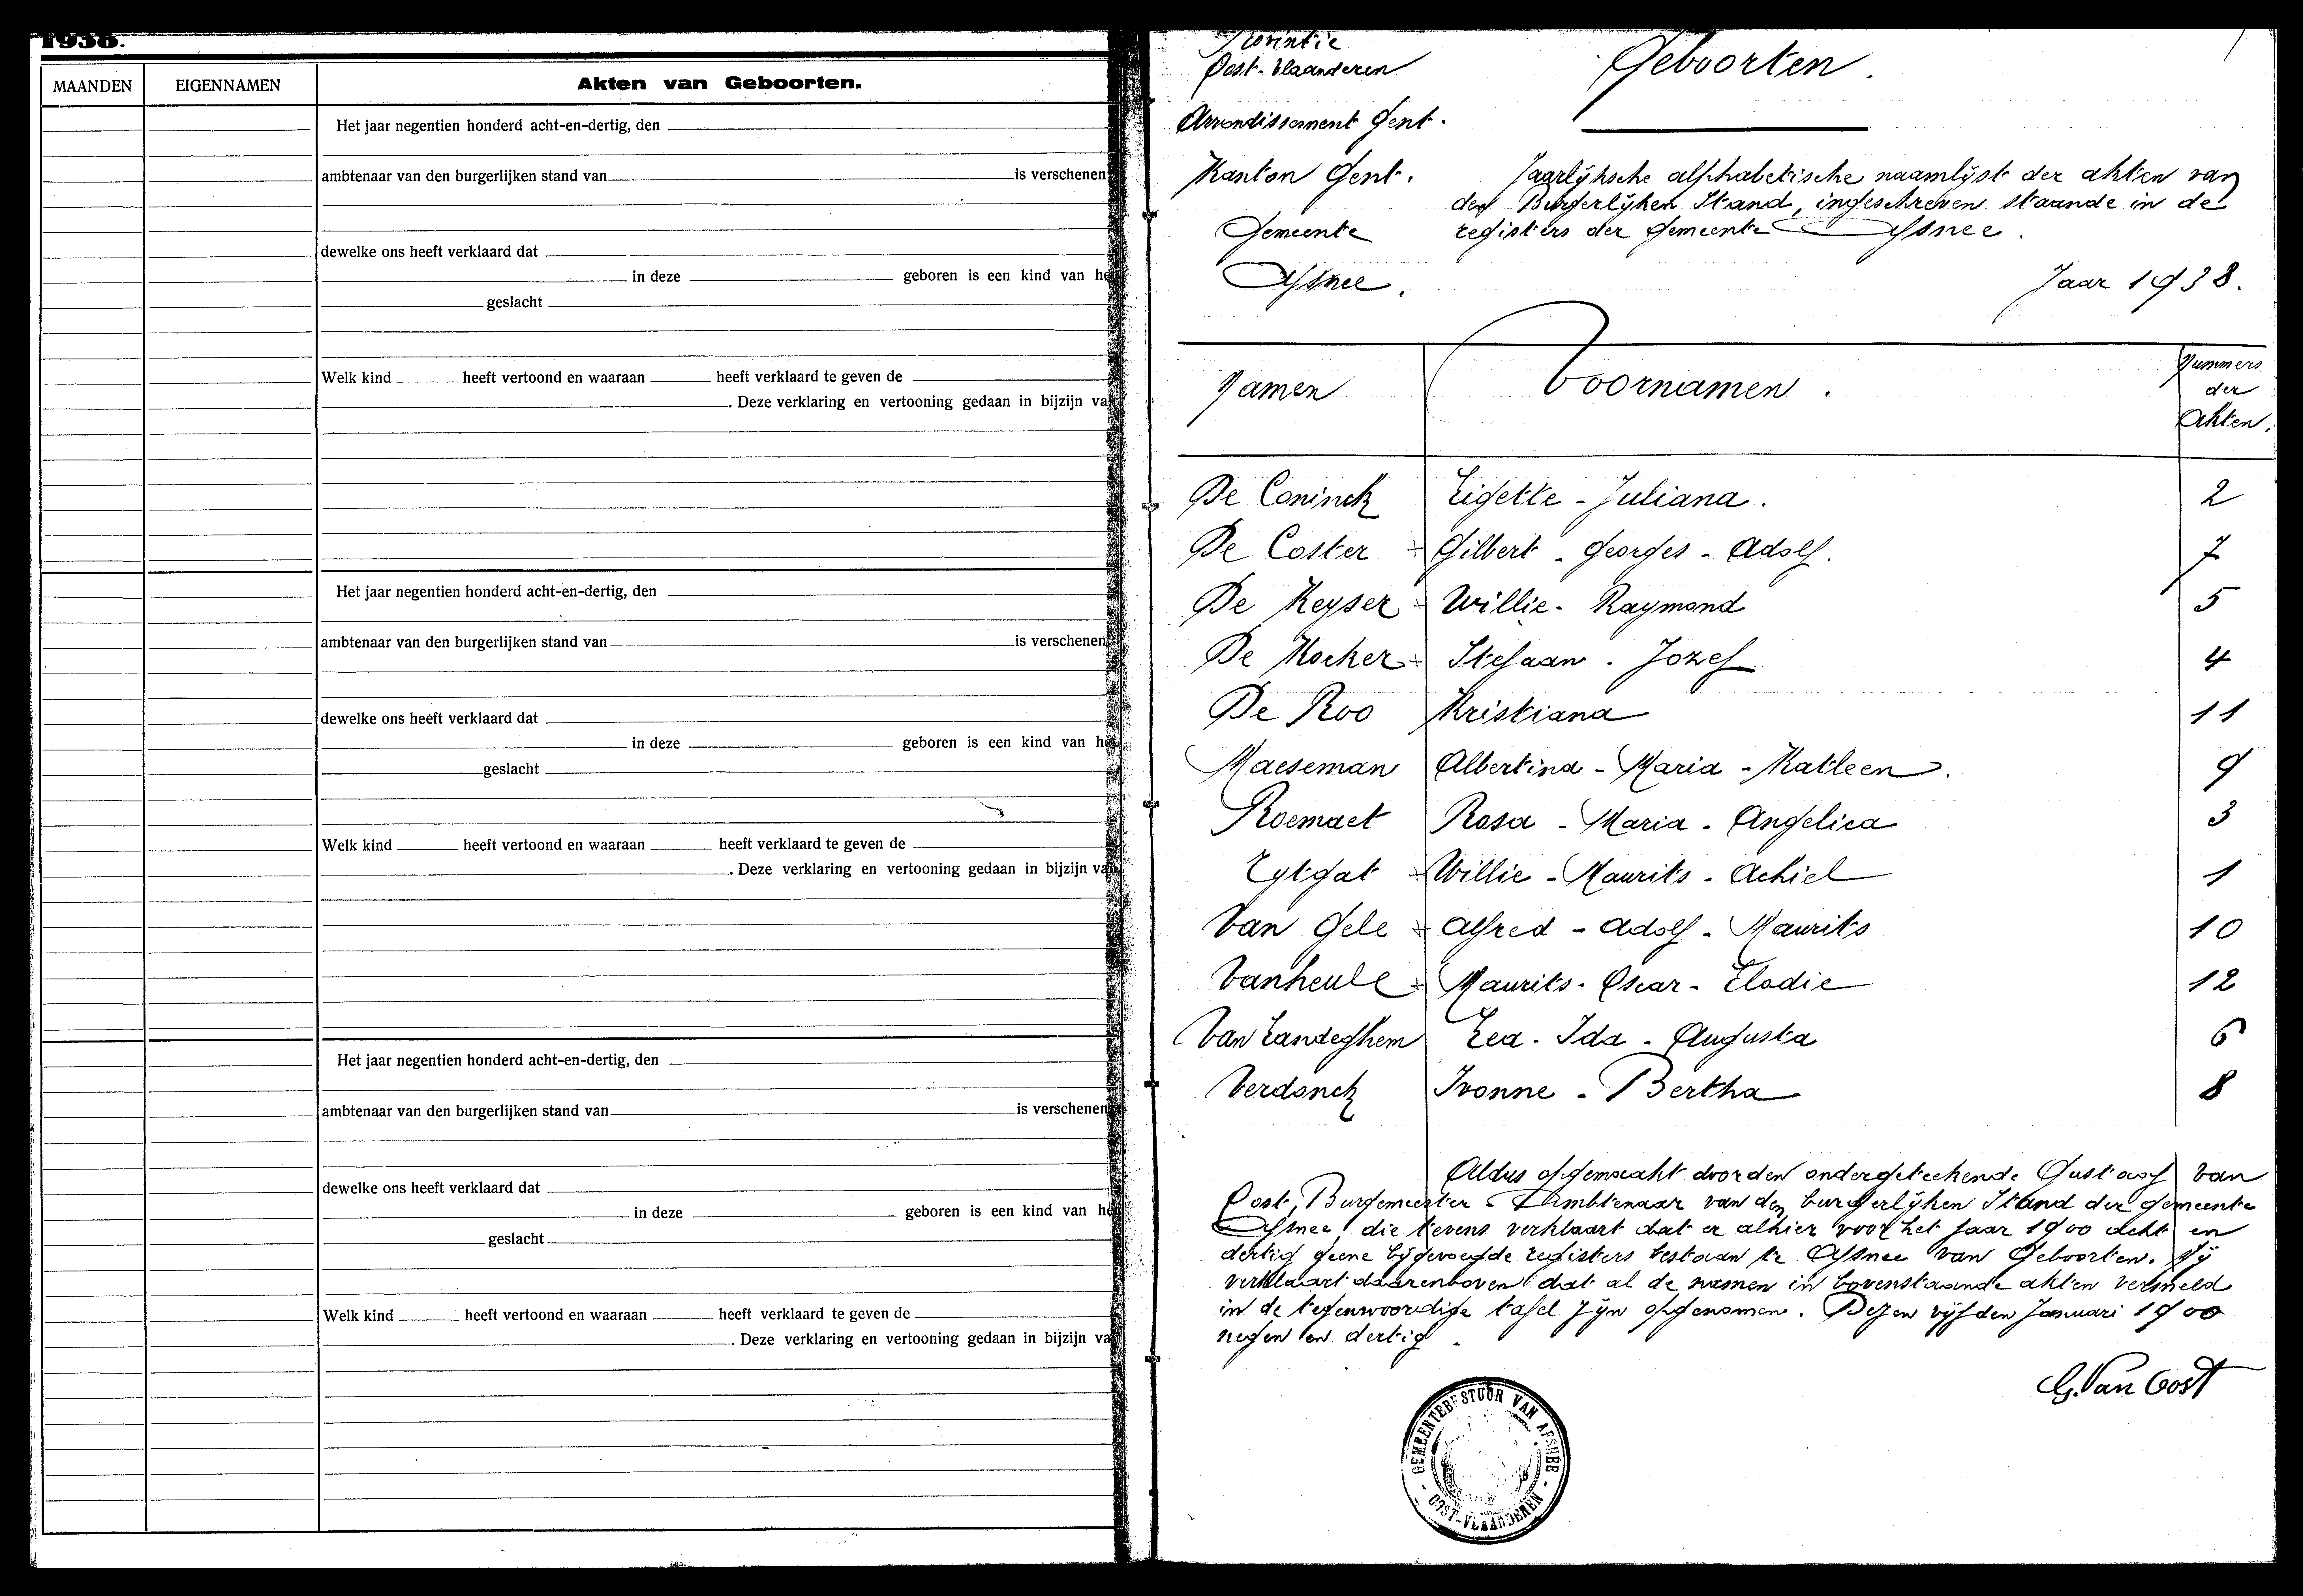 1938.
MAANDEN
EIGENNAMEN
Akten van Geboorten.
Het jaar negentien honderd acht-en-dertig, den
ambtenaar van den burgerlijken stand van is verschenen
dewelke ons heeft verklaard dat
in deze geboren is een kind van he
geslacht
Welk kind heeft vertoond en waaraan heeft verklaard te geven de
. Deze verklaring en vertooning gedaan in bijzijn va
Het jaar negentien honderd acht-en-dertig, den
ambtenaar van den burgerlijken stand van is verschenen
dewelke ons heeft verklaard dat
in deze geboren is een kind van he
geslacht
Welk kind heeft vertoond en waaraan heeft verklaard te geven de
. Deze verklaring en vertooning gedaan in bijzijn va
Het jaar negentien honderd acht-en-dertig, den
ambtenaar van den burgerlijken stand van is verschenen
dewelke ons heeft verklaard dat
in deze geboren is een kind van he
geslacht
Welk kind heeft vertoond en waaraan heeft verklaard te geven de
. Deze verklaring en vertooning gedaan in bijzijn va
Provintie
Oost-Vlaanderen
Arrondissement Gent.
Kanton Gent.
Gemeente
Afsnee.
Geboorten.
Jaarlijksche alphabetische naamlijst der akten van
den Burgerlijken Stand, ingeschreven staande in de
registers der gemeente Afsnee.
Jaar 1938.
Namen Voornamen. Nummers
der
Akten.
De Coninck Ligette - Juliana. 2
De Coster Gilbert - Georges - Adolf. 7
De Keyser Willie - Raymond 5
De Kocker Stefaan - Jozef 4
De Roo Kristiana 11
Maeseman Albertina - Maria - Katleen. 9
Roemaet Rosa - Maria - Angelica 3
Eytgat Willie - Maurits - Achiel 1
Van Gele Alfred - Adolf - Maurits 10
Vanheule Maurits - Oscar - Elodie 12
Van Landeghem Lea - Ida - Augusta 6
Verdonck Ivonne - Bertha 8
Aldus opgemaakt door den ondergeteekende Gustaaf Van
Oost, Burgemeester - Ambtenaar van den burgerlijken Stand der gemeente
Afsnee, die tevens verklaart dat er alhier voor het jaar 1900 acht en
dertig geene bijgevoegde registers bestaan te Afsnee van Geboorten. Hij
verklaart daarenboven dat al de namen in bovenstaande akten vermeld
in de tegenwoordige tafel zijn opgenomen. Dezen vijfden Januari 1900
negen en dertig.
G. Van Oost
GEMEENTEBESTUUR VAN AFSNEE
- OOST-VLAANDEREN -